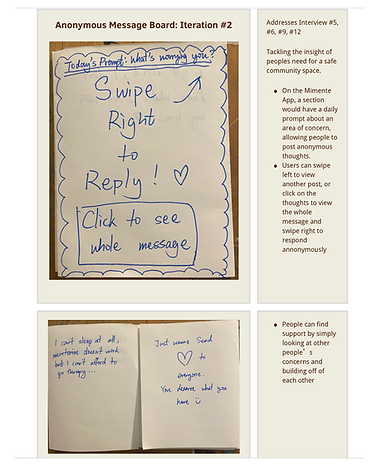 Anonymous Message Board: Iteration #2
Today's Prompt: what's worrying you?
Swipe
Right
to
Reply! ♡
Click to see
whole message
Addresses Interview #5,
#6, #9, #12
Tackling the insight of
peoples need for a safe
community space.
● On the Mimente
App, a section
would have a daily
prompt about an
area of concern,
allowing people to
post anonymous
thoughts.
● Users can swipe
left to view
another post, or
click on the
thoughts to view
the whole
message and
swipe right to
respond
annonymously
I can't sleep at all,
doesn't work
but I can't afford to
go therapy...
Just wanna Send
♡ to
everyone.
You deserve what you
have ☺
● People can find
support by simply
looking at other
people's
concerns and
building off of
each other